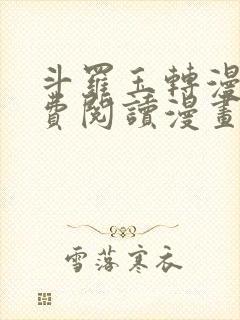 斗羅玉轉漫
費閱讀漫畫
雪落寒衣